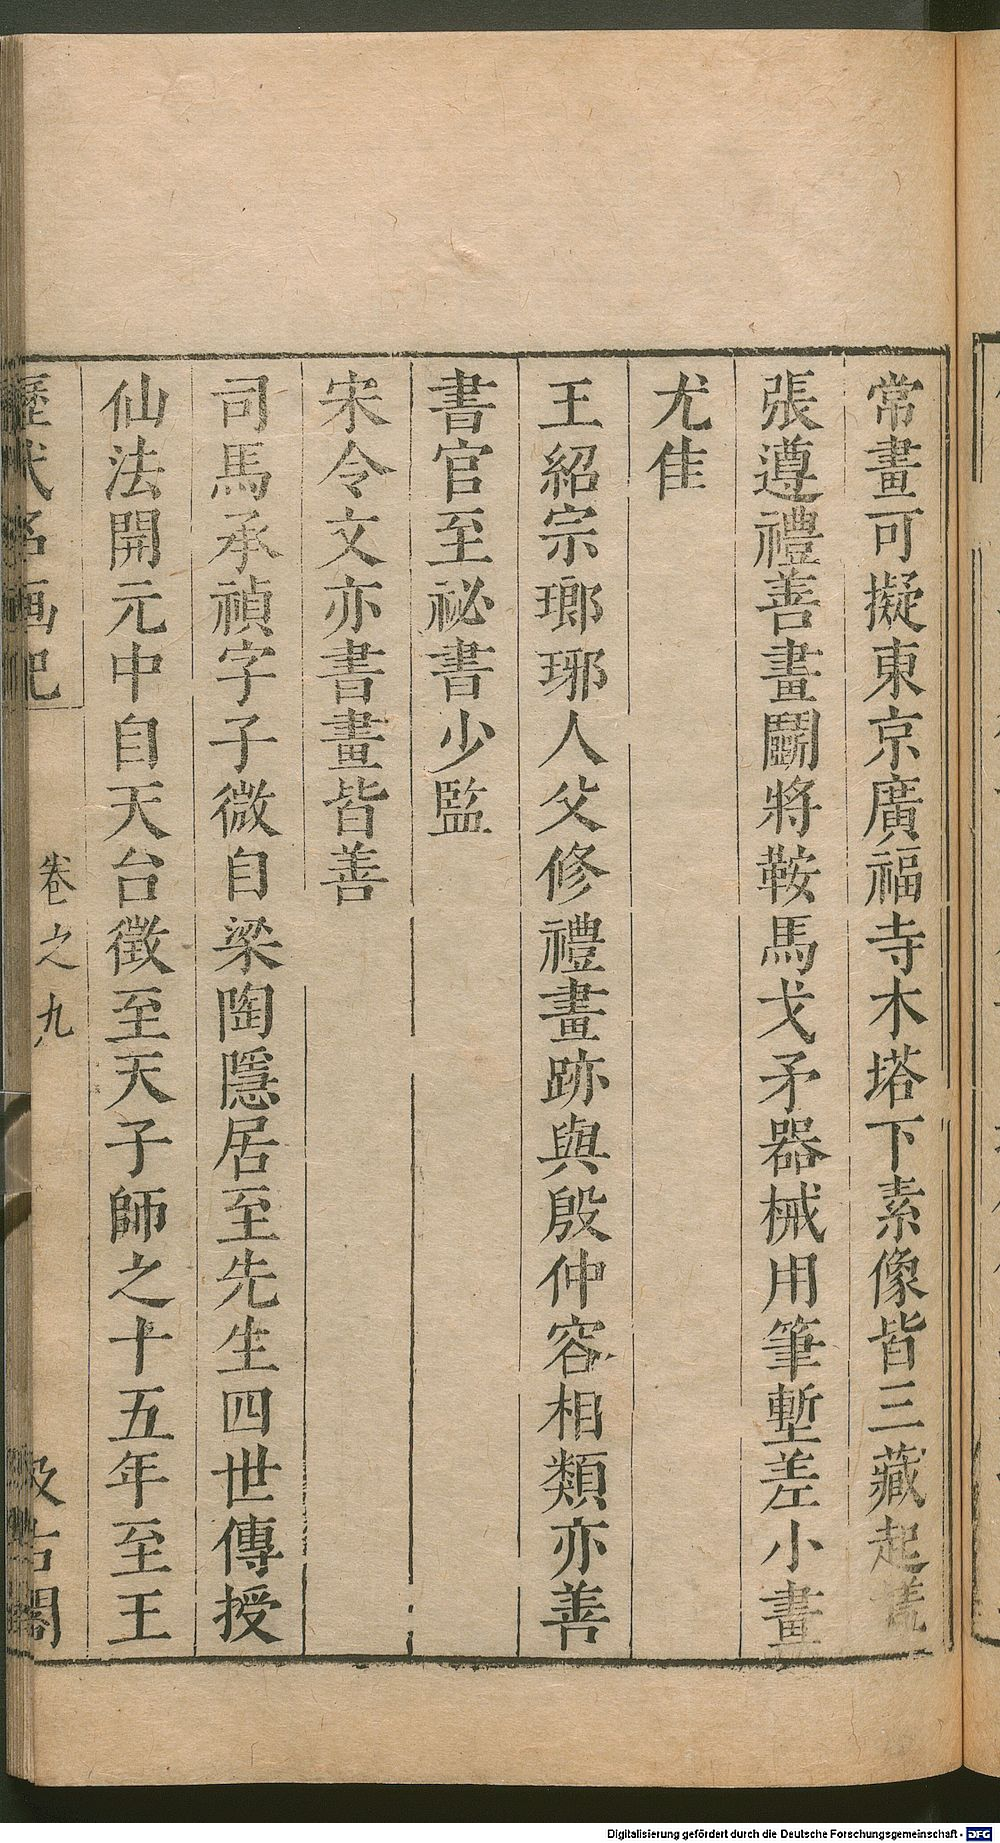 常畫可擬東京廣福寺木塔下素像皆三藏起
張遵禮善畫鬭將鞍馬戈矛器械用筆塹差小畫
尤佳
王紹宗瑯琊人父修禮畫跡與殷仲容相類亦善
書官至祕書少監
宋令文亦書畫皆善
司馬承禎字子微自梁陶隱居至先生四世傳授
仙法開元中自天台徵至天子師之十五年至王
歷代名畫記
卷之九
汲古閣
Digitalisierung gefördert durch die Deutsche Forschungsgemeinschaft - DFG